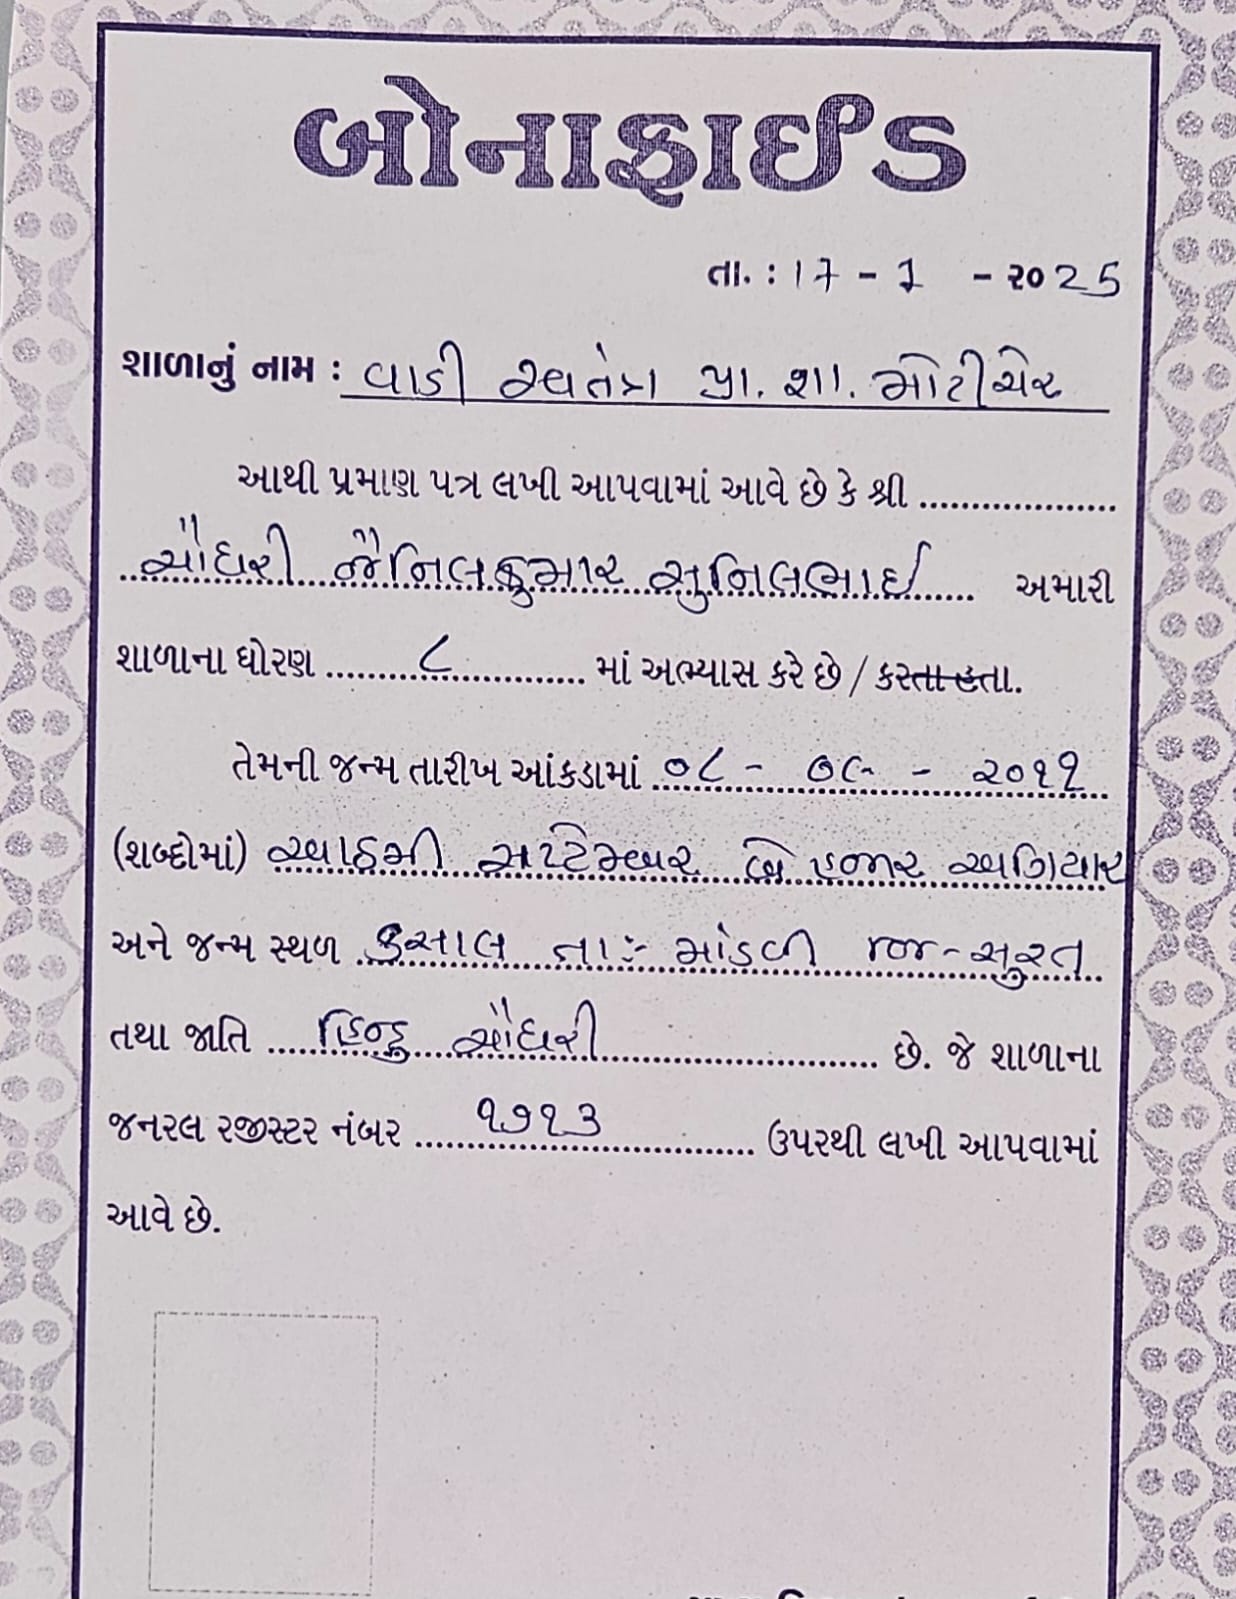 બોનાફાઈડ
તા. : 17 - 7 - ૨૦25
શાળાનું નામ : વાડી સ્વતંત્ર પ્રા. શા. મોટીચેર
આથી પ્રમાણ પત્ર લખી આપવામાં આવે છે કે શ્રી
ચૌધરી જૈનિલકુમાર સુનિલભાઈ અમારી
શાળાના ધોરણ ૮ માં અભ્યાસ કરે છે / કરતા હતા.
તેમની જન્મ તારીખ આંકડામાં ૦૮ - ૦૯ - ૨૦૧૧
(શબ્દોમાં) આઠમી સપ્ટેમ્બર બે હજાર અગિયાર
અને જન્મ સ્થળ કસાલ તા:- માંડવી જી-સુરત
તથા જાતિ હિન્દુ ચૌધરી છે. જે શાળાના
જનરલ રજીસ્ટર નંબર ૧૭૧૩ ઉપરથી લખી આપવામાં
આવે છે.